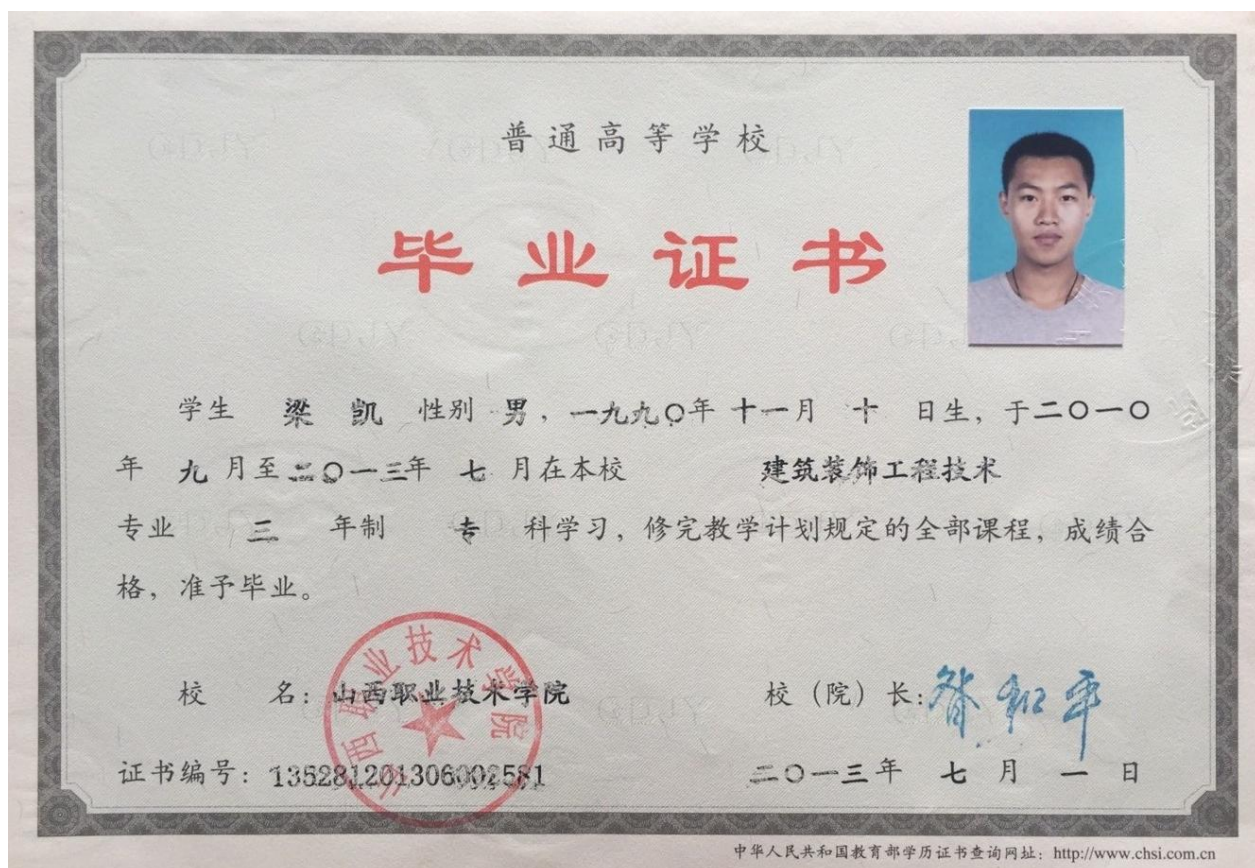 普通高等学校
毕业证书
学生 梁凯 性别 男，一九九〇年 十一月 十 日生，于二〇一〇
年 九 月至二〇一三年 七 月在本校 建筑装饰工程技术
专业 三 年制 专 科学习，修完教学计划规定的全部课程，成绩合
格，准予毕业。
山西职业技术学院
校 名：山西职业技术学院 校（院）长：昝和平
证书编号：135281201306002581 二〇一三年 七 月 一 日
中华人民共和国教育部学历证书查询网址：http://www.chsi.com.cn